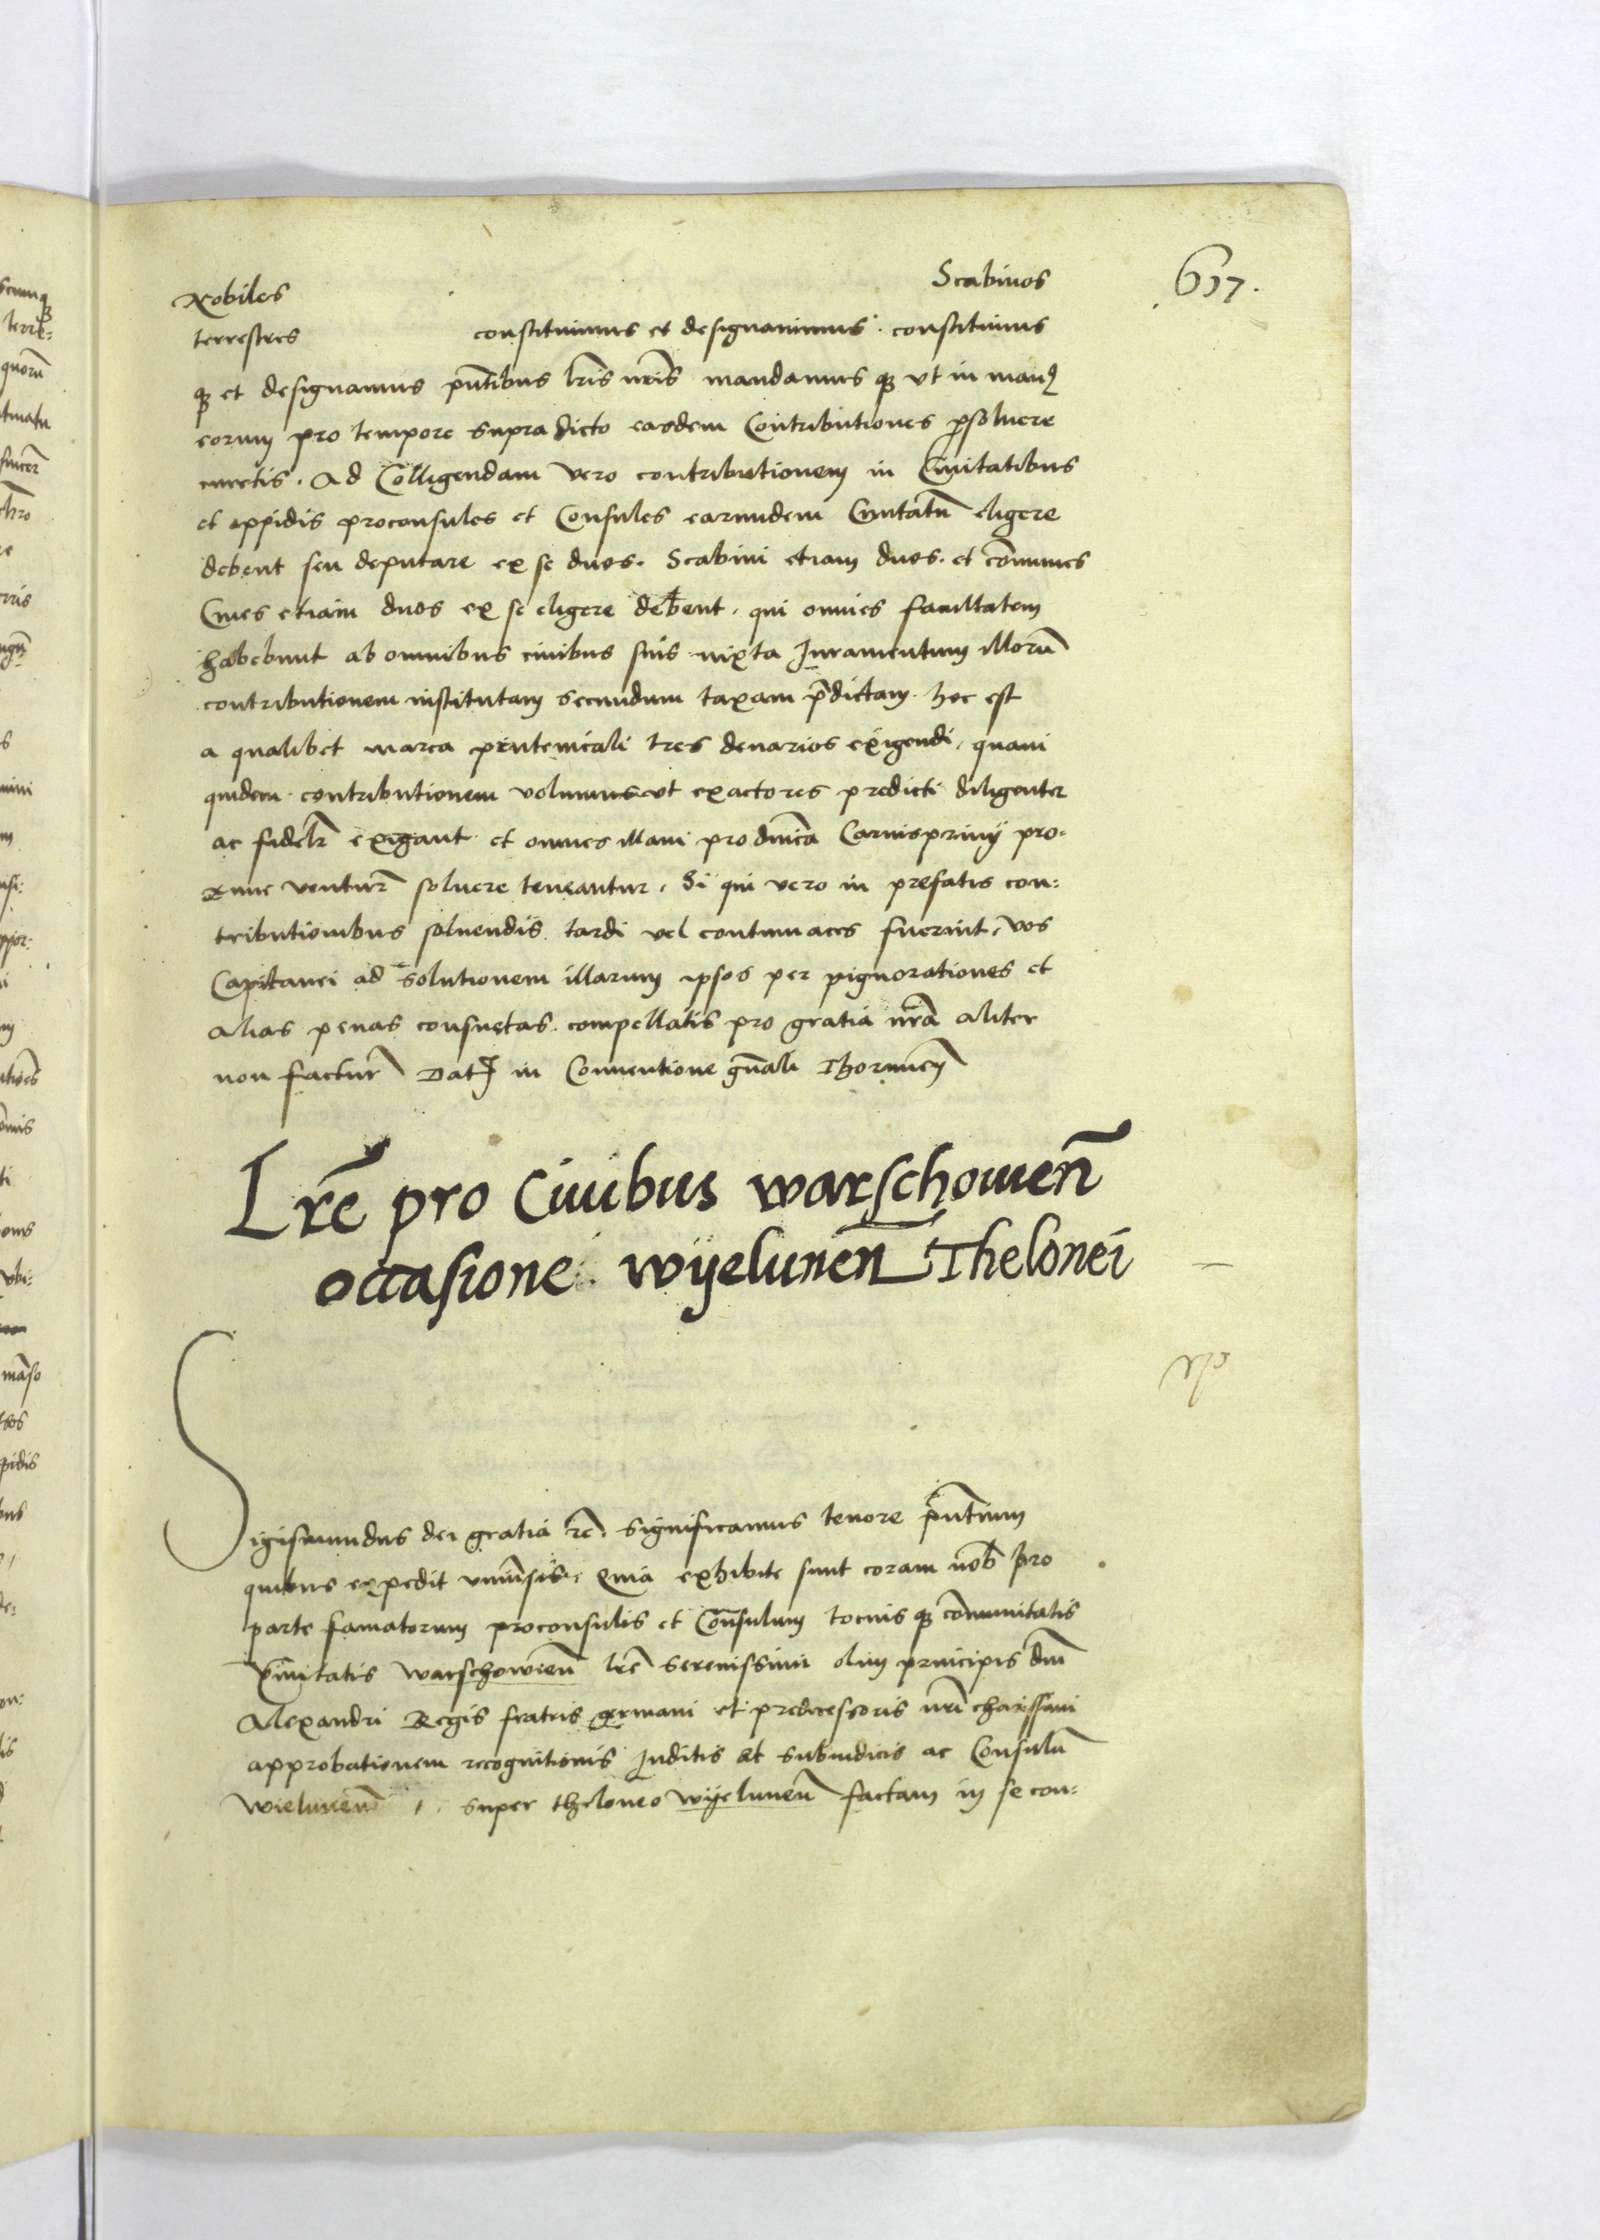 637.
Nobiles Scabinos
terrestres constituimus et designauimus. constituimus
qз et designamus pn̄tibus lrīs nrīs mandamus qз vt in man9
eorum pro tempore supra dicto easdem Contributiones ꝑsoluere
curetis. Ad Colligendam vero contributionem in Ciuitatibus
et oppidis proconsules et Consules earundem Ciuitatū eligere
debent seu deputare ex se duos. Scabini etiam duos. et cōmunes
Ciues etiam duos ex se eligere debent. qui omnes facultatem
habebunt ab omnibus ciuibus suis iuxta Iuramentum illorū
contributionem institutam secundum taxam p̄dictam. hoc est
a qualibet marca prutenicali tres denarios exigendi, quam
quidem contributionem volumus vt exactores predicti diligenter
ac fidelr̄ exigant et omnes illam pro dnīca Carnispriuij pro-
xime ventur̄ soluere teneantur. Si qui vero in prefatis con:
tributionibus soluendis tardi vel contumaces fuerint, vos
Capitanei ad solutionem illarum ipsos per pignorationes et
alias penas consuetas compellatis pro gratia nrā aliter
non factur̄ Dat in Conuentione gn̄ali Thorunen̄
Lrē pro Ciuibus warschouien̄
occasione wyelunen̄ Thelonei
Sigismundus dei gratia rē. significamus tenore pn̄tium
quibus expedit vniūsis. Quia exhibite sunt coram nob̄ pro
parte famatorum proconsulis et Cōnsulum tocius qз cōmunitatis
Ciuitatis warschowien̄ lrē serenissimi olim principis dnī
Alexandri Regis fratris germani et predecessoris nrī charissimi
approbationem recognitionis Iuditis et subiudicis ac Consulū
wielunen̄ super theloneo wyelunen̄ factam in se con: